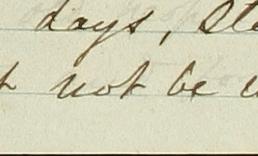 days,
not be